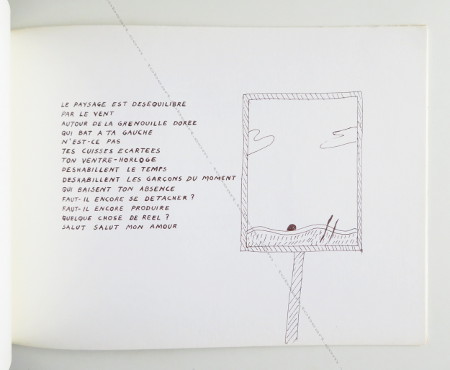 LE PAYSAGE EST DESÉQUILIBRE
PAR LE VENT
AUTOUR DE LA GRENOUILLE DORÉE
QUI BAT A TA GAUCHE
N'EST-CE PAS
TES CUISSES ÉCARTÉES
TON VENTRE-HORLOGE
DESHABILLENT LE TEMPS
DESHABILLENT LES GARÇONS DU MOMENT
QUI BAISENT TON ABSENCE
FAUT-IL ENCORE SE DETACHER ?
FAUT-IL ENCORE PRODUIRE
QUELQUE CHOSE DE REEL ?
SALUT SALUT MON AMOUR